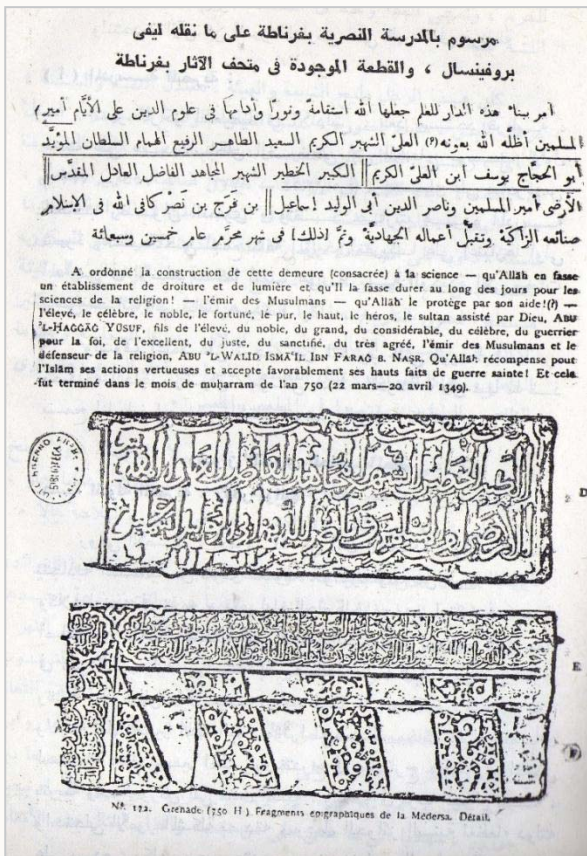 مرسوم بالمدرسة النصرية بغرناطة على ما نقله ليفى
بروفينسال ، والقطعة الموجودة فى متحف الآثار بغرناطة
أمر ببناء هذه الدار للعلم جعلها الله استقامة ونورًا وأدامها فى علوم الدين على الأيّام أمير)
المسلمين أظلّه الله بعونه (؟) العليّ الشهير الكريم السعيد الطاهر الرفيع الهمام السلطان المؤيّد
أبو الحجّاج يوسف ابن العليّ الكريم || الكبير الخطير الشهير المجاهد الفاضل العادل المقدّس ||
الأرضى أمير المسلمين وناصر الدين أبى الوليد إسماعيل || بن فرج بن نصر كافى الله فى الإسلام
صنائعه الزاكية وتقبّل أعماله الجهاديّة وتمّ (ذلك) فى شهر محرّم عام خمسين وسبعمائة
A ordonné la construction de cette demeure (consacrée) à la science — qu'Allāh en fasse
un établissement de droiture et de lumière et qu'Il la fasse durer au long des jours pour les
sciences de la religion! — l'émir des Musulmans — qu'Allāh le protège par son aide!(?) —
l'élevé, le célèbre, le noble, le fortuné, le pur, le haut, le héros, le sultan assisté par Dieu, ABU
'L-ḤAGGĀG YŪSUF, fils de l'élevé, du noble, du grand, du considérable, du célèbre, du guerrier
pour la foi, de l'excellent, du juste, du sanctifié, du très agréé, l'émir des Musulmans et le
défenseur de la religion, ABU 'L-WALĪD ISMĀ'ĪL IBN FARAĞ B. NAṢR. Qu'Allāh récompense pour
l'Islām ses actions vertueuses et accepte favorablement ses hauts faits de guerre sainte! Et cela
fut terminé dans le mois de muḥarram de l'an 750 (22 mars—20 avril 1349).
2 D
E
Nº. 172. Grenade (750 H.) Fragments épigraphiques de la Médersa. Détail.